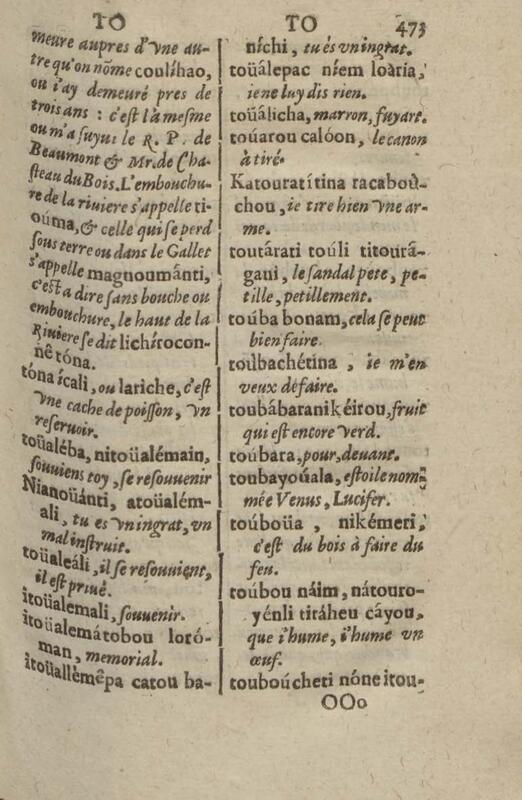 TO
meure aupres d'vne au-
tre qu'on nõme coulíhao,
ou i'ay demeuré pres de
trois ans : c'est là mesme
ou m'a suyui le R. P. de
Beaumont & Mr. de Cha-
steau du Bois. L'embouchu-
re de la riuiere s'appelle ti-
oúma, & celle qui se perd
sous terre ou dans le Gallet
s'appelle magnoumánti,
c'est a dire sans bouche ou
embouchure, le haut de la
Riuiere se dit lichírocon-
nê tóna.
tóna ícali, ou lariche, c'est
vne cache de poisson, vn
reseruoir.
toüaléba, nitoüalémain,
souuiens toy, se resouuenir
Nianoüánti, atoüalém-
ali, tu es vn ingrat, vn
mal instruit.
toüaleáli, il se resouuient,
il est priué.
itoüalemali, souuenir.
itoüalemátobou loró-
man, memorial.
itoüallèmêpa catou ba-
TO 473
níchi, tu és vn ingrat.
toüálepac níem loària,
ie ne luy dis rien.
toüálicha, marron, fuyart.
toúarou calóon, le canon
à tiré.
Katouratítina racaboù-
chou, ie tire bien vne ar-
me.
toutárati toúli titourá-
gani, le sandal pete, pe-
tille, petillement.
toúba bonam, cela se peut
bien faire.
toùbachétina, ie m'en
veux défaire.
toubábaranikéitou, fruit
qui est encore verd.
toúbara, pour, deuant.
toubayoúala, estoile nom-
mée Venus, Lucifer.
toúboüa, nikémeri,
c'est du bois à faire du
feu.
toúbou náim, nátouro-
yénli tiráheu cáyou,
que i'hume, i'hume vn
œuf.
touboúcheti nóne itou-
OOo